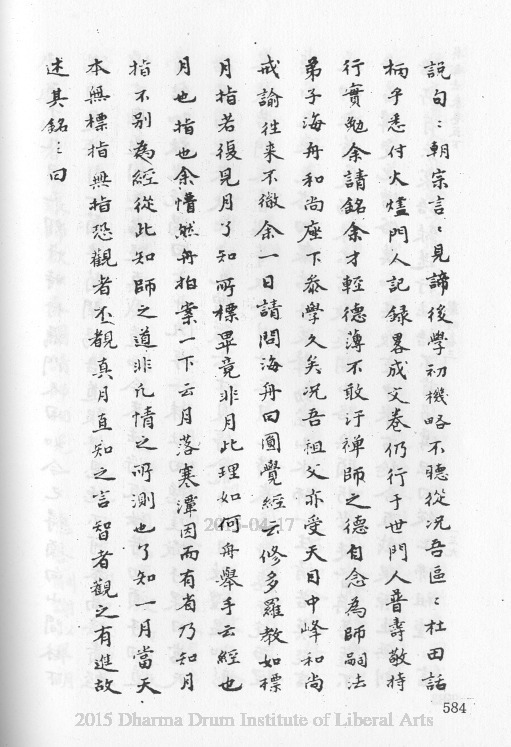 說句〻朝宗言〻見諦後學初機略不聽從况吾區〻杜田話
柄乎悉付火爐門人記録畧成文卷仍行于世門人普壽敬持
行實勉余請銘余才輕德薄不敢汙禅師之德自念為師嗣法
弟子海舟和尚座下叅學久矣况吾祖父亦受天目中峰和尚
戒諭徃来不徹余一日請問海舟曰圎覺經云修多羅教如標
月指若復見月了知所標畢竟非月此理如何舟舉手云經也
月也指也余懵然舟拍案一下云月落寒潭因而有省乃知月
指不别為經從此知師之道非凢情之所測也了知一月當天
本無標指無指恐觀者不覩真月直知之言智者觀之有進故
述其銘〻曰
584
2015-04-17
2015 Dharma Drum Institute of Liberal Arts